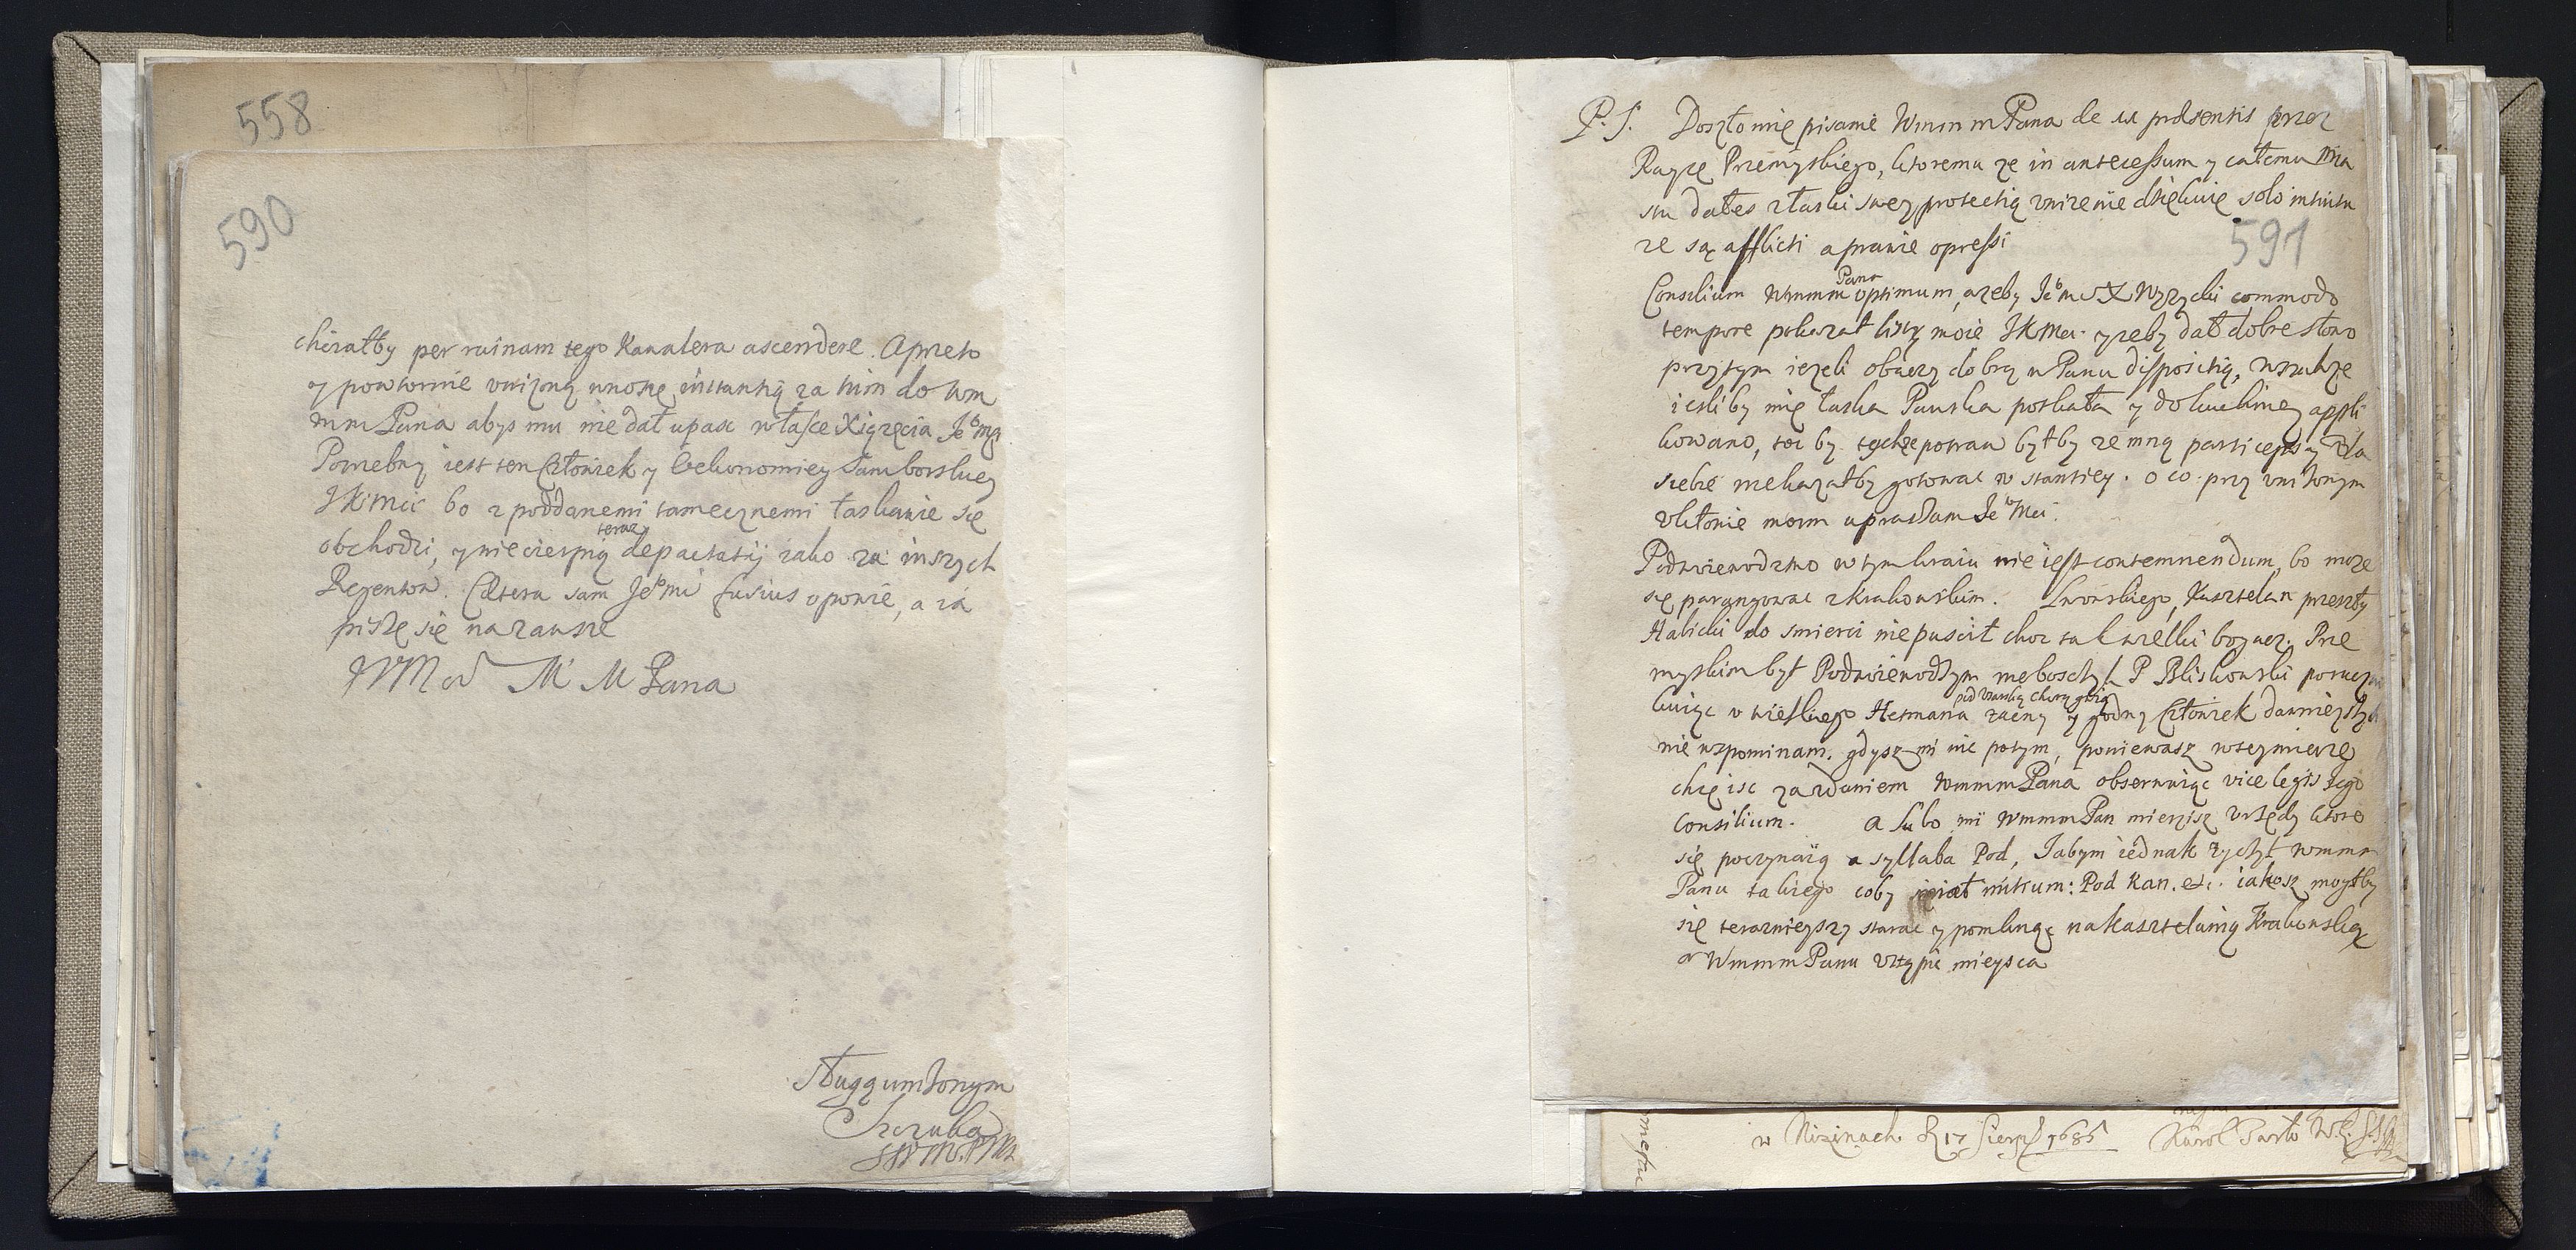 558
590
chciałby per ruinam tego Kawalera ascendere. A przeto
y powtornie unizoną wnoszę instantią za nim do Wm
mm Pana abys mu nie dał upasc w łasce Xiązęcia Je͡o Mci
Potrzebny iest ten Człowiek y Oekonomiey Samborskiey
JKMci bo z poddanemi tamecznemi łaskawie się
teraz
obchodzi, y nie cierpią depactatij iako za inszych
Regentow. Cætera sam Je͡o Mc fusius opowie, a ia
piszę się na zawsze
WMci M M Pana
Sługą unizonym
Szczuka
591
P. S. Doszło mię pisanie Wmmm Pana de 11 præsentis przez
Raycę Przemyskiego, ktoremu ze in antecessum y całemu Mia
stu dałes z łaski swey protectią unizenie dziękuię solo intuitu
ze są afflicti a prawie opressi
Pana
Consilium Wmmm optimum, azeby Je͡o Mc X Wyzycki commodo
tempore pokazał listy moie JKMci y zeby dał dobre słowo
przytym iezeli obaczy dobrą w Panu dispositią, wszakze
iesliby mię łaska Panska potkała y do kuchniey appli
kowano, toc by tychze potraw byłby ze mną particeps y dla
siebie nie kazałby gotowac w stantiey. o co przy unizonym
ukłonie moim upraszam Je͡o Mci.
Podwoiewodztwo w tym kraiu nie iest contemnendum, bo moze
się parangonowac z Krakowskim. Lwowskiego, Kasztelan przeszły
Halicki do smierci nie puscił choc tak wielki bogacz. Prze
myskim był Podwoiewodzym nieboszczyk P Bliskowski porucz
pod Usarską chorągwią
kuiąc u wielkiego Hetmana zacny y godny Człowiek dawnieyszych
nie wspominam. gdysz mi nic potym, poniewasz w tey mierze
chcę isc za zdaniem Wmmm Pana obserwuiąc vice legis tego
Consilium. A lubo mi Wmmm Pan mierzisz Urzędy ktore
się poczynaią a syllaba Pod, Jabym iednak zyczył Wmmm
Panu takiego coby miał initium: Pod Kan. etc. iakosz mogłby
się terazniejszy starac y pomknąc na Kasztelanią Krakowską
a Wmmm Panu ustąpic mieysca
w Nizinach d 17 Sierp 1685 Karol Tarło